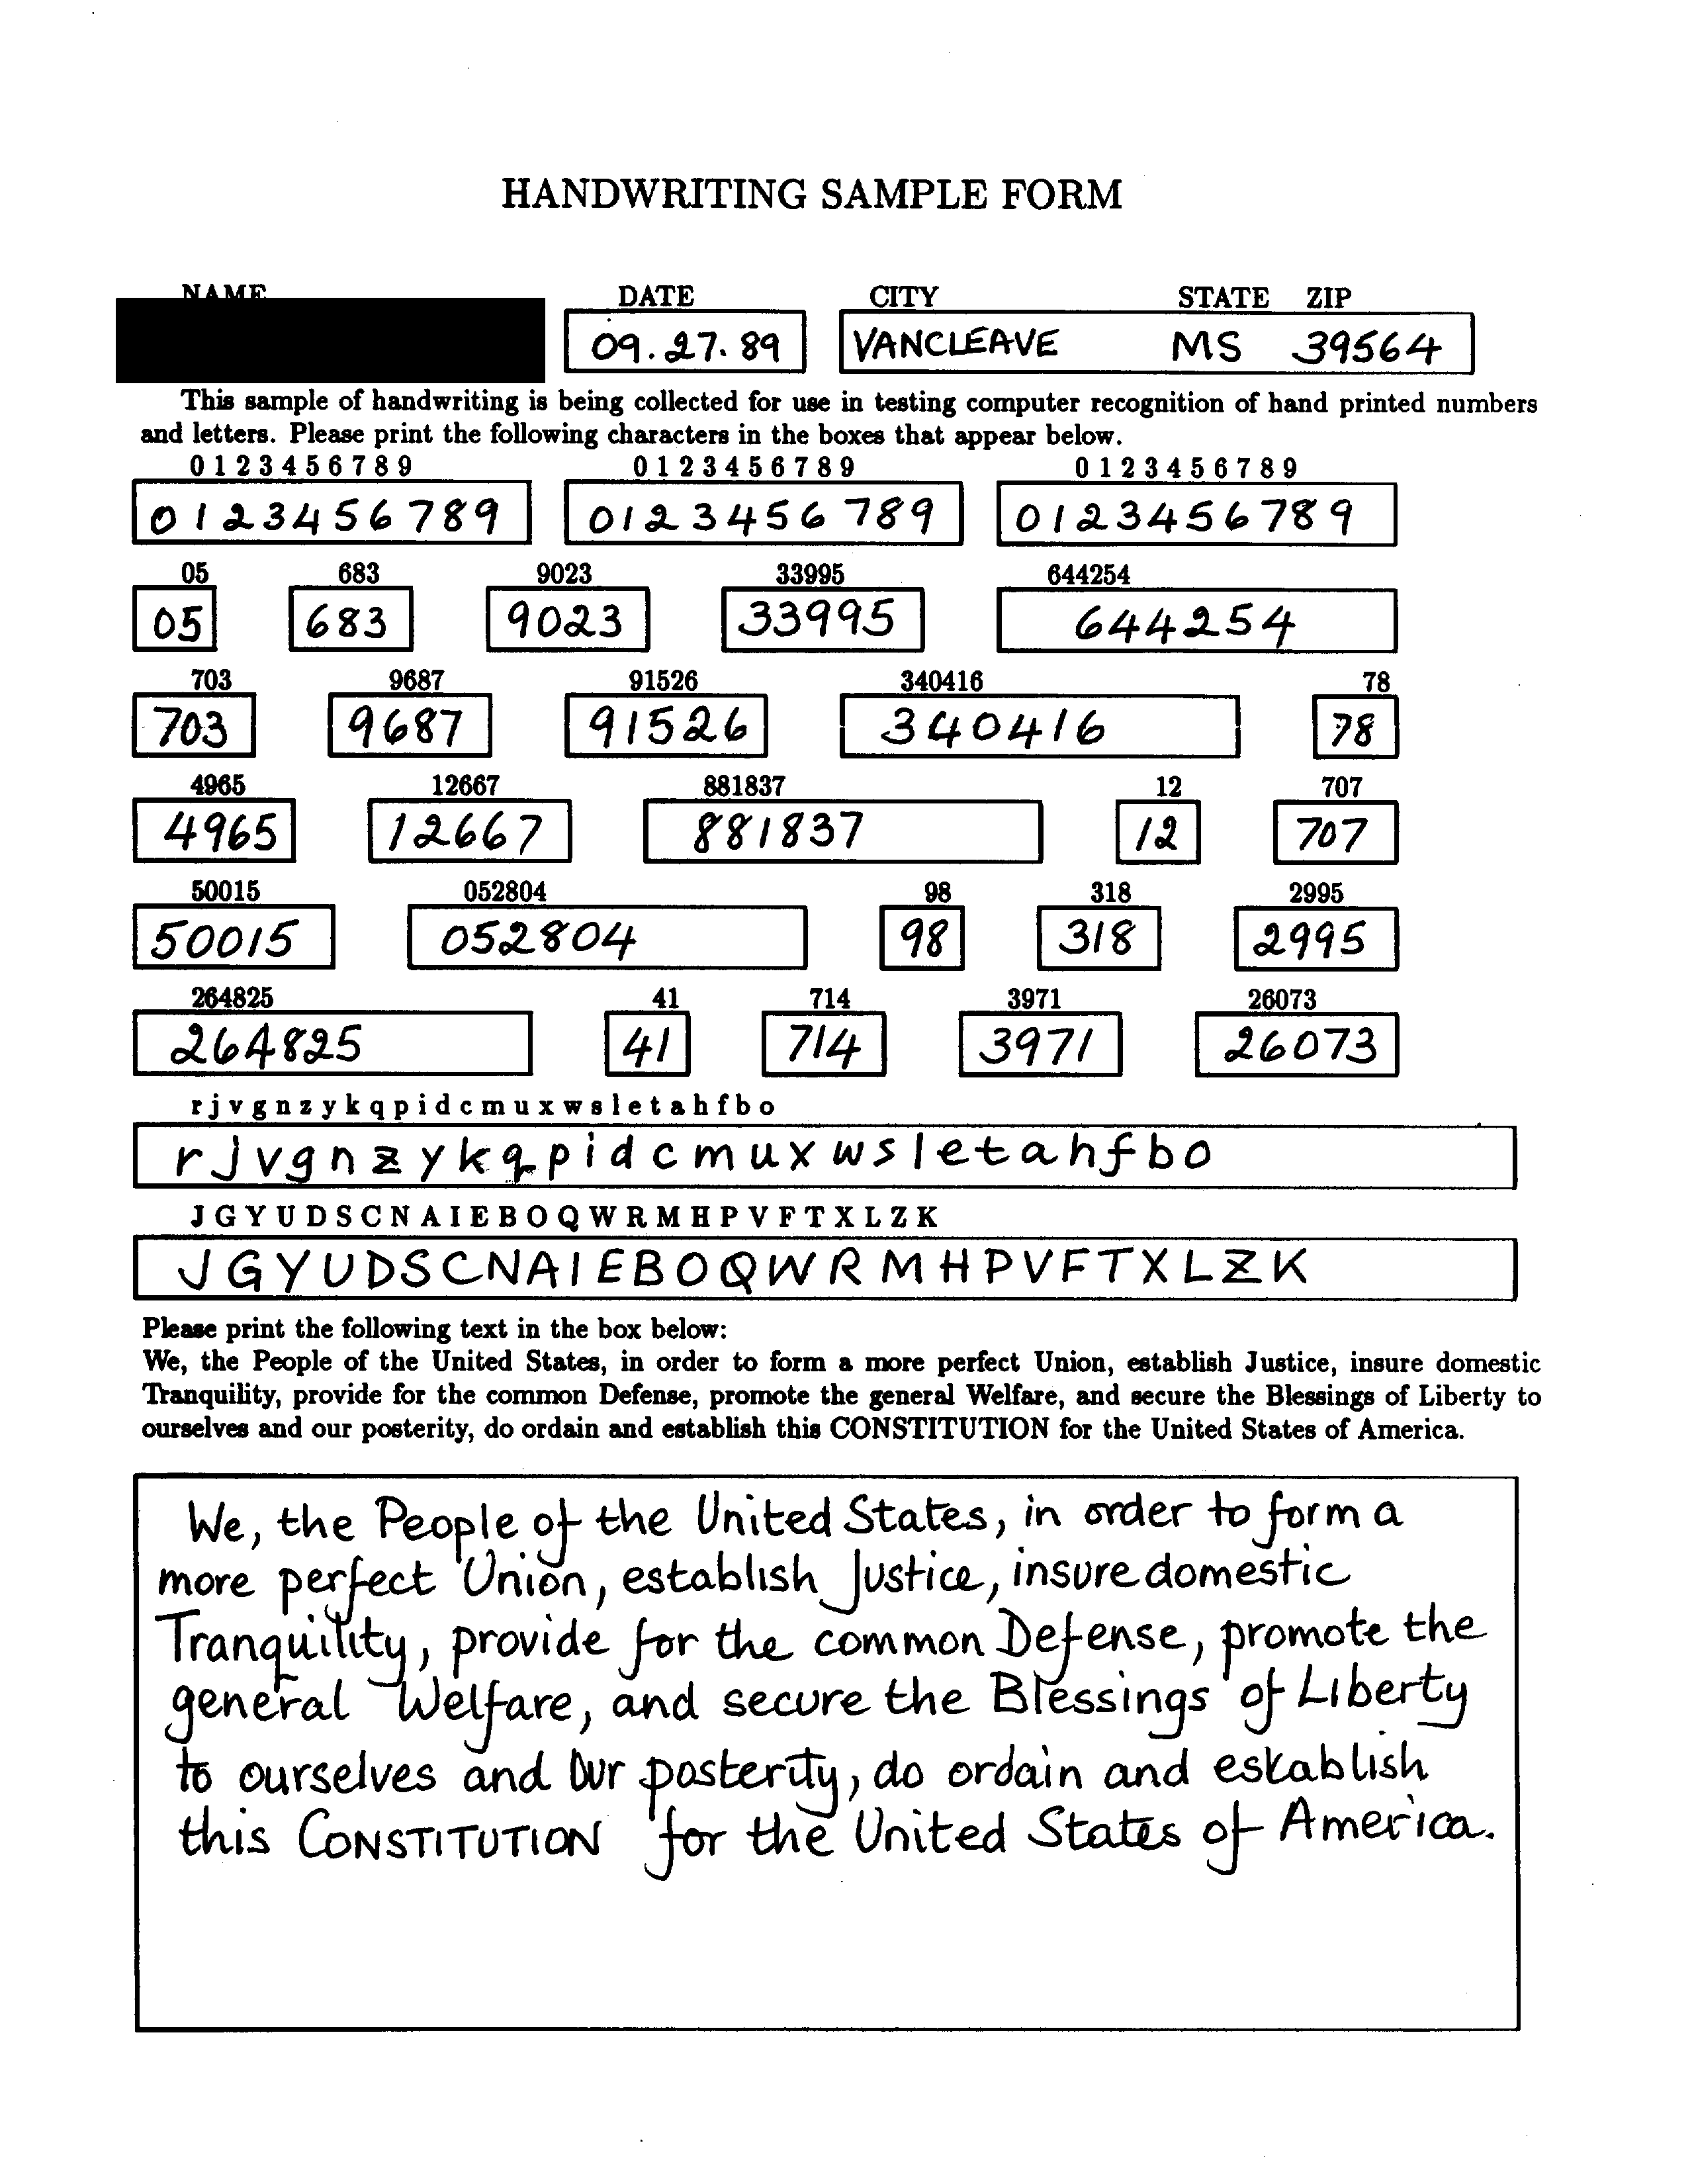 HANDWRITING SAMPLE FORM
NAME DATE CITY STATE ZIP
09.27.89 VANCLEAVE MS 39564
This sample of handwriting is being collected for use in testing computer recognition of hand printed numbers
and letters. Please print the following characters in the boxes that appear below.
0 1 2 3 4 5 6 7 8 9 0 1 2 3 4 5 6 7 8 9 0 1 2 3 4 5 6 7 8 9
0123456789 0123456789 0123456789
05 683 9023 33995 644254
05 683 9023 33995 644254
703 9687 91526 340416 78
703 9687 91526 340416 78
4965 12667 881837 12 707
4965 12667 881837 12 707
50015 052804 98 318 2995
50015 052804 98 318 2995
264825 41 714 3971 26073
264825 41 714 3971 26073
r j v g n z y k q p i d c m u x w s l e t a h f b o
r j v g n z y k q p i d c m u x w s l e t a h f b o
J G Y U D S C N A I E B O Q W R M H P V F T X L Z K
J G Y U D S C N A I E B O Q W R M H P V F T X L Z K
Please print the following text in the box below:
We, the People of the United States, in order to form a more perfect Union, establish Justice, insure domestic
Tranquility, provide for the common Defense, promote the general Welfare, and secure the Blessings of Liberty to
ourselves and our posterity, do ordain and establish this CONSTITUTION for the United States of America.
We, the People of the United States, in order to form a
more perfect Union, establish Justice, insure domestic
Tranquility, provide for the common Defense, promote the
general Welfare, and secure the Blessings of Liberty
to ourselves and our posterity, do ordain and establish
this CONSTITUTION for the United States of America.